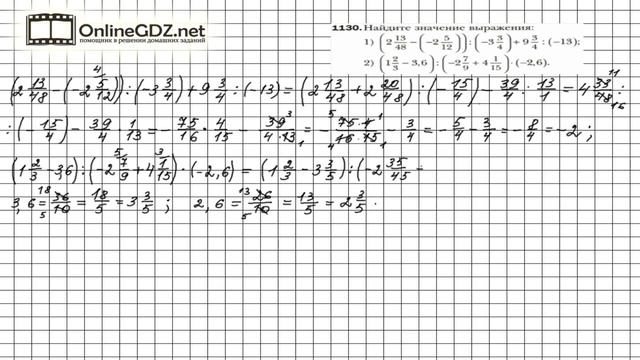 OnlineGDZ.net
помощник в решении домашних заданий
1130. Найдите значение выражения:
1) (2 13/48 − (−2 5/12)) : (−3 3/4) + 9 3/4 : (−13);
2) (1 2/3 − 3,6) : (−2 7/9 + 4 1/15) · (−2,6).
(2 13/48 − (−2 5/12)) : (−3 3/4) + 9 3/4 : (−13) = (2 13/48 + 2 20/48) : (−15/4) − 39/4 : 13/1 = 4 33/48 :
: (−15/4) − 39/4 · 1/13 = − 75/16 · 4/15 − 39/4·13 = − 75·4/16·15 − 3/4 = − 5/4 − 3/4 = − 8/4 = −2 ;
(1 2/3 − 3,6) : (−2 7/9 + 4 1/15) · (−2,6) = (1 2/3 − 3 3/5) : (−2 35/45 −
3,6 = 36/10 = 18/5 = 3 3/5 ; 2,6 = 26/10 = 13/5 = 2 3/5 .